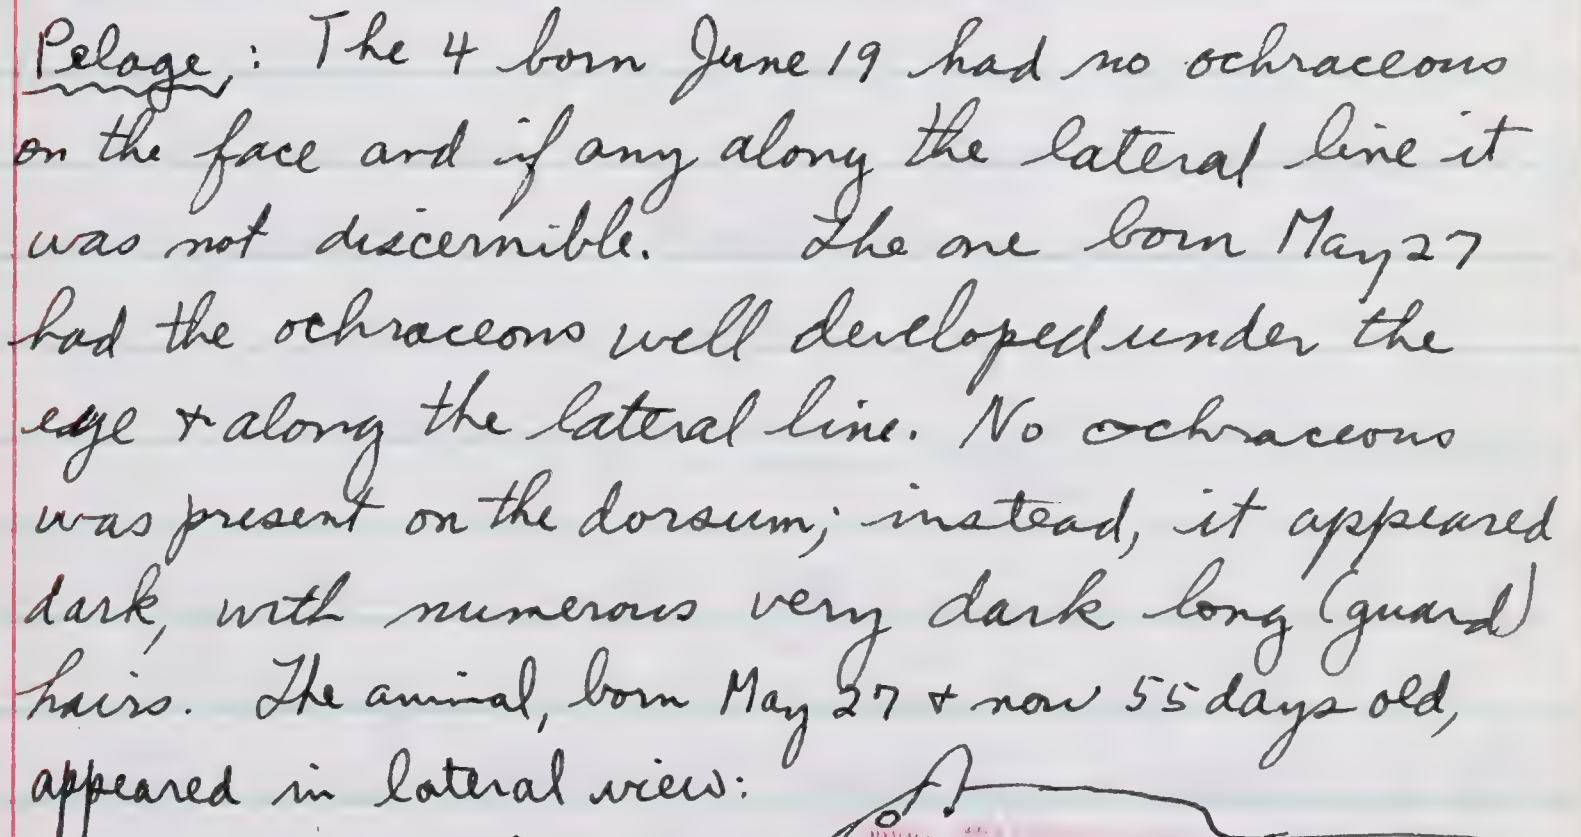 Pelage: The 4 born June 19 had no ochraceous
on the face and if any along the lateral line it
was not discernible. The one born May 27
had the ochraceous well developed under the
eye + along the lateral line. No ochraceous
was present on the dorsum; instead, it appeared
dark, with numerous very dark long (guard)
hairs. The animal, born May 27 + now 55 days old,
appeared in lateral view: